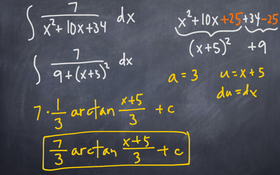 ∫ 7/(x²+10x+34) dx
x²+10x+25+34-25
(x+5)² +9
∫ 7/(9+(x+5)²) dx
a=3 u=x+5
du=dx
7·1/3 arctan (x+5)/3 +c
7/3 arctan (x+5)/3 +c